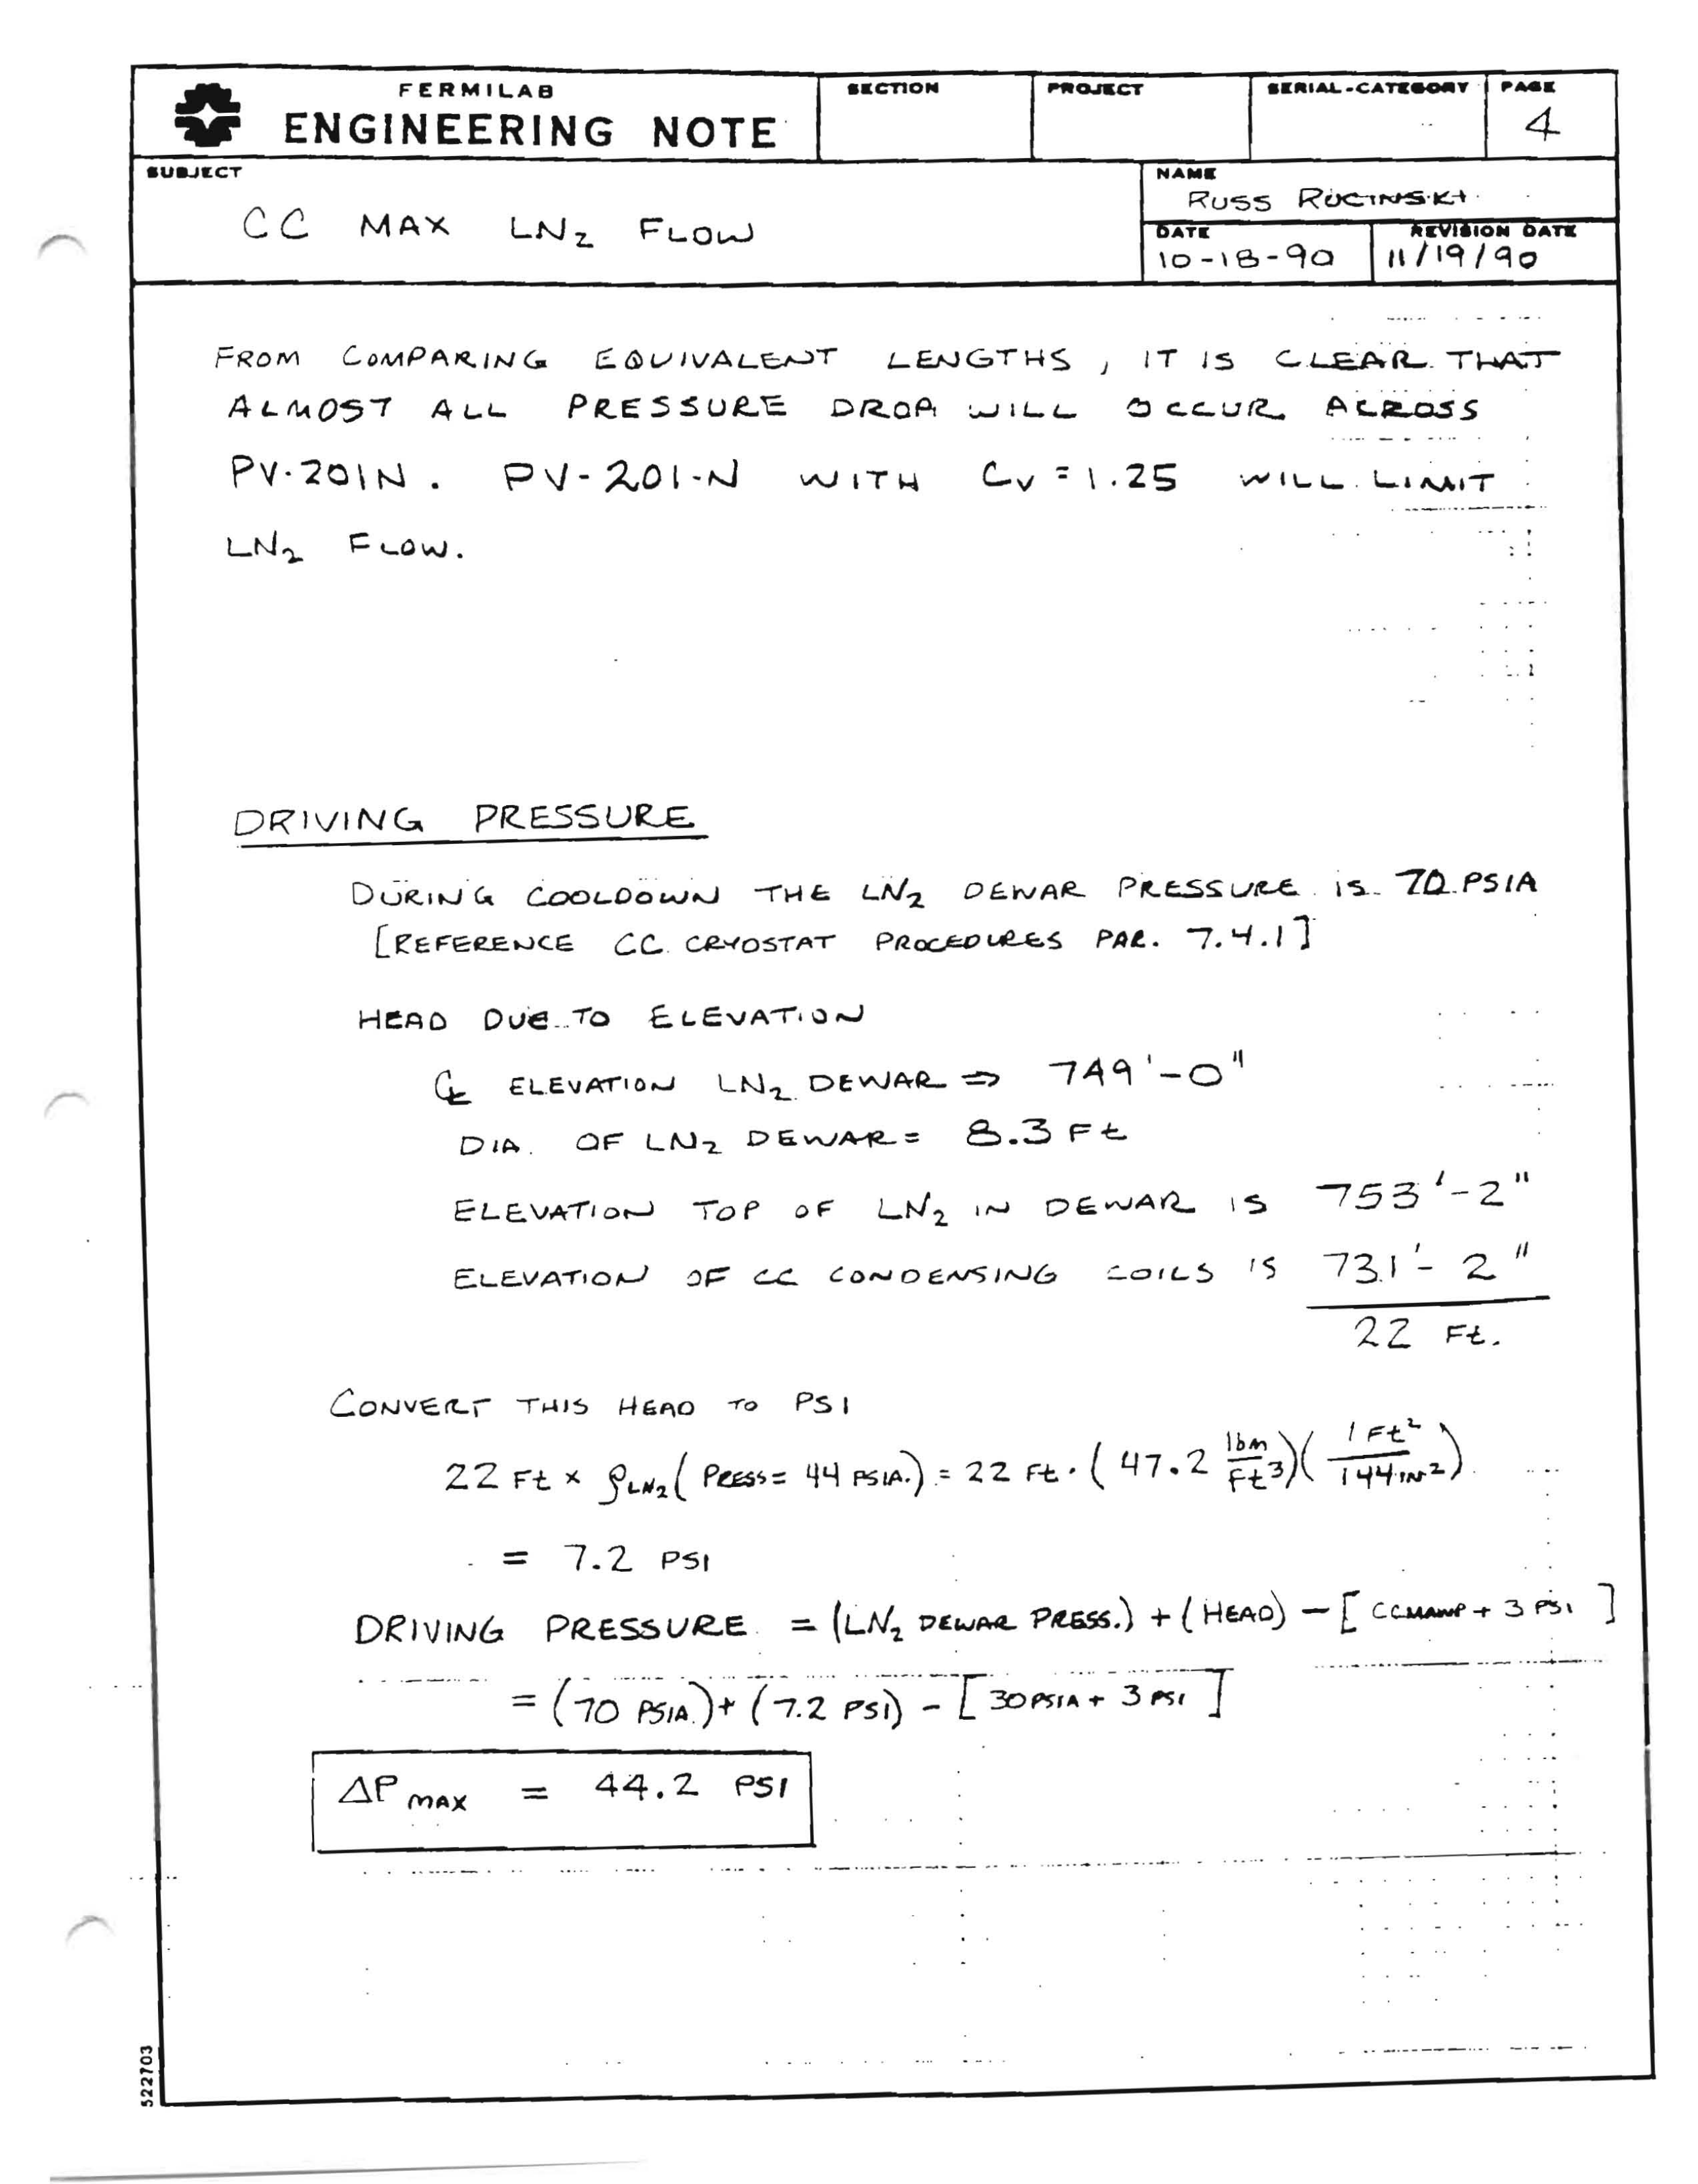 FERMILAB
ENGINEERING NOTE
SECTION
PROJECT
SERIAL-CATEGORY
PAGE
4
SUBJECT
CC MAX LN₂ FLOW
NAME
RUSS RUCINSKI
DATE
10-18-90
REVISION DATE
11/19/90
FROM COMPARING EQUIVALENT LENGTHS, IT IS CLEAR THAT
ALMOST ALL PRESSURE DROP WILL OCCUR ACROSS
PV-201N. PV-201-N WITH Cv = 1.25 WILL LIMIT
LN₂ FLOW.
DRIVING PRESSURE
DURING COOLDOWN THE LN₂ DEWAR PRESSURE IS 70 PSIA
[REFERENCE CC CRYOSTAT PROCEDURES PAR. 7.4.1]
HEAD DUE TO ELEVATION
℄ ELEVATION LN₂ DEWAR ⇒ 749'-0"
DIA. OF LN₂ DEWAR = 8.3 Ft
ELEVATION TOP OF LN₂ IN DEWAR IS 753'-2"
ELEVATION OF CC CONDENSING COILS IS 731'-2"
22 Ft.
CONVERT THIS HEAD TO PSI
22 Ft × ρLN₂ (PRESS = 44 PSIA.) = 22 Ft · (47.2 lbm/Ft³)(1 Ft²/144 IN²)
= 7.2 PSI
DRIVING PRESSURE = (LN₂ DEWAR PRESS.) + (HEAD) - [CCMAWP + 3 PSI]
= (70 PSIA) + (7.2 PSI) - [30 PSIA + 3 PSI]
ΔP MAX = 44.2 PSI
522703